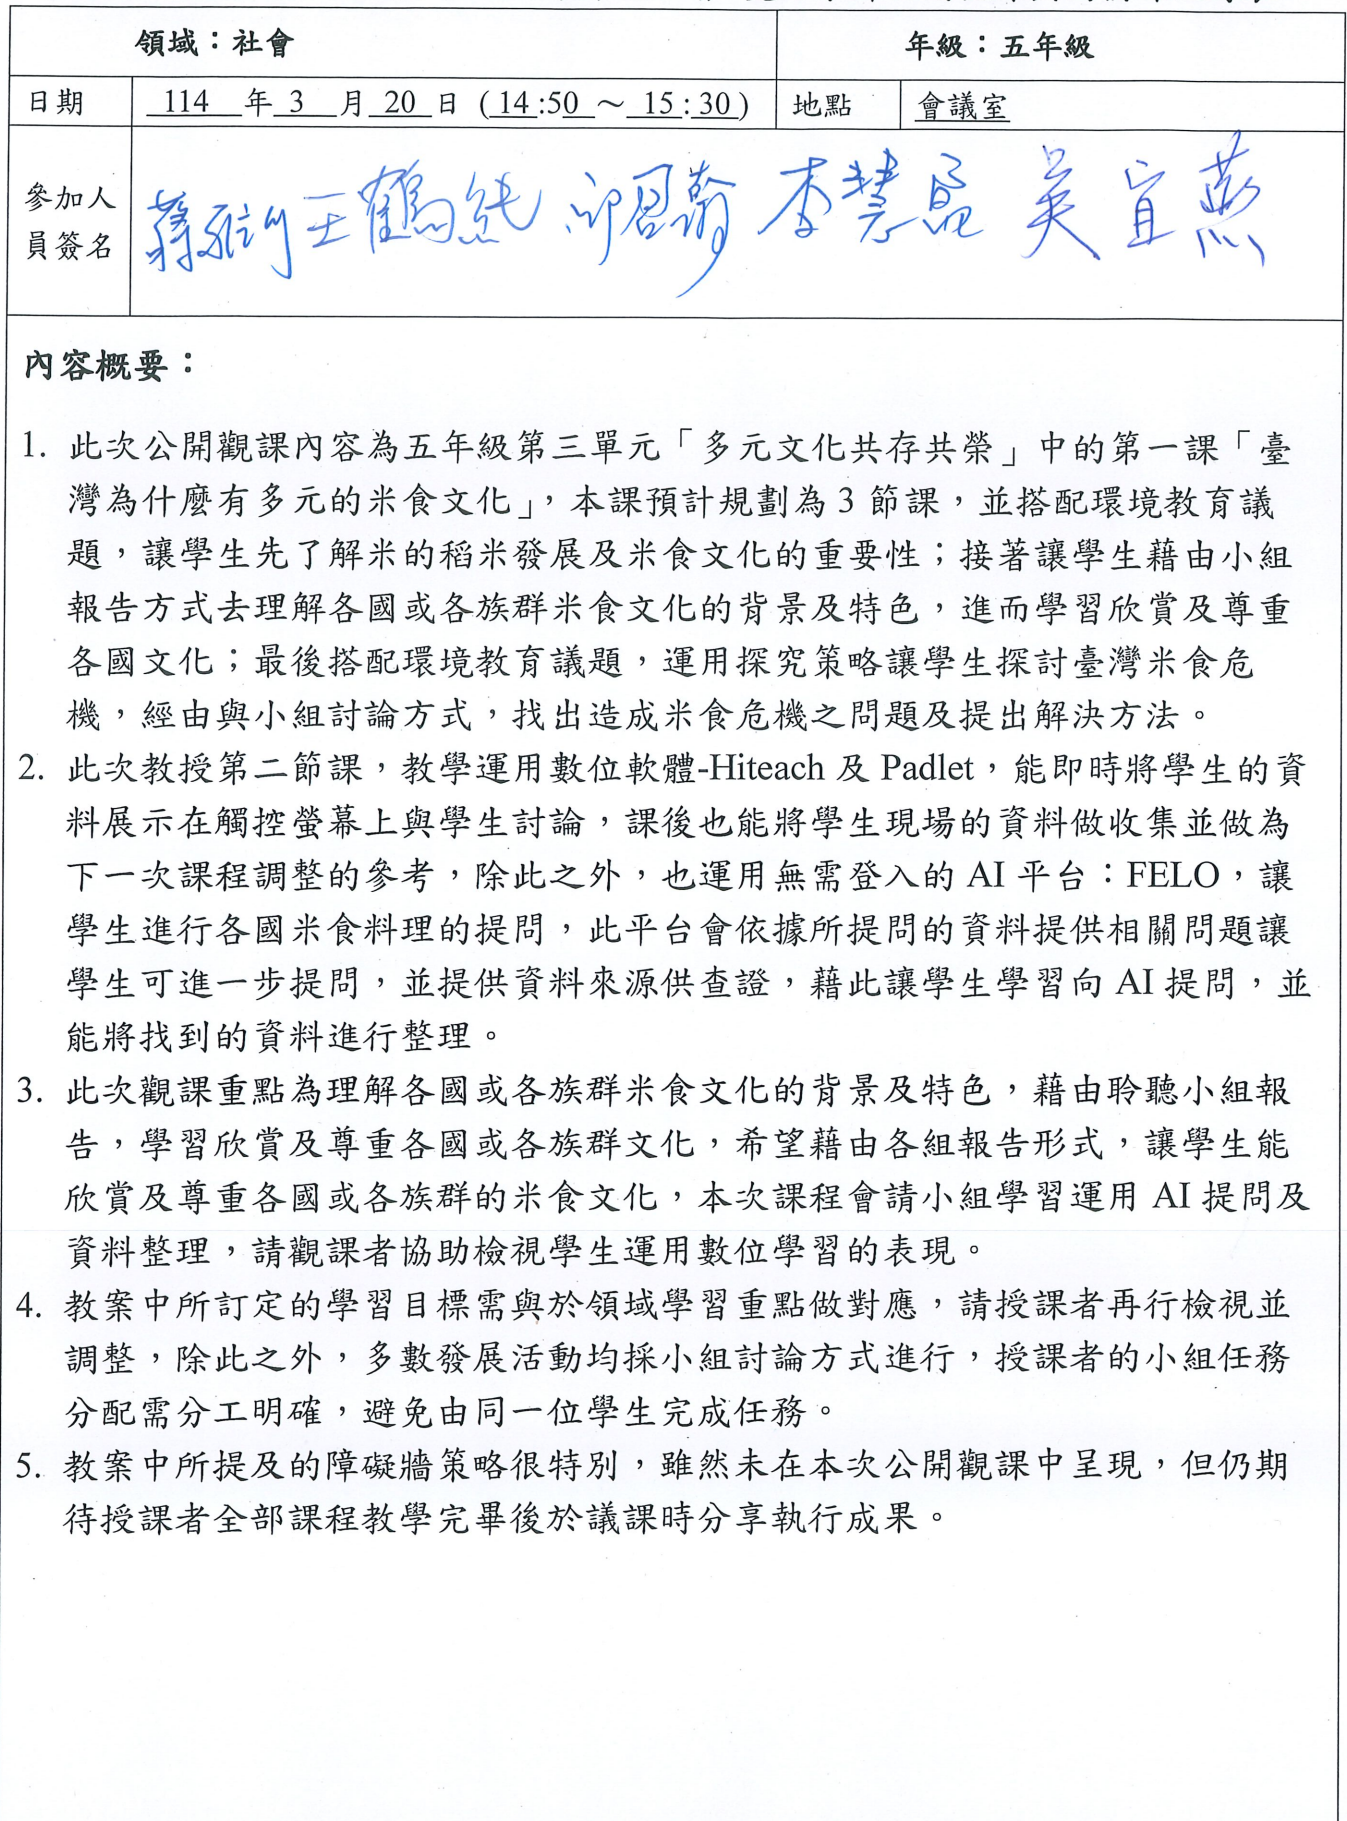 領域：社會
年級：五年級
日期
114 年 3 月 20 日 (14:50 ～ 15:30)
地點
會議室
參加人
員簽名
王鶴純
李慧
吳宜燕
內容概要：
1. 此次公開觀課內容為五年級第三單元「多元文化共存共榮」中的第一課「臺
灣為什麼有多元的米食文化」，本課預計規劃為 3 節課，並搭配環境教育議
題，讓學生先了解米的稻米發展及米食文化的重要性；接著讓學生藉由小組
報告方式去理解各國或各族群米食文化的背景及特色，進而學習欣賞及尊重
各國文化；最後搭配環境教育議題，運用探究策略讓學生探討臺灣米食危
機，經由與小組討論方式，找出造成米食危機之問題及提出解決方法。
2. 此次教授第二節課，教學運用數位軟體-Hiteach 及 Padlet，能即時將學生的資
料展示在觸控螢幕上與學生討論，課後也能將學生現場的資料做收集並做為
下一次課程調整的參考，除此之外，也運用無需登入的 AI 平台：FELO，讓
學生進行各國米食料理的提問，此平台會依據所提問的資料提供相關問題讓
學生可進一步提問，並提供資料來源供查證，藉此讓學生學習向 AI 提問，並
能將找到的資料進行整理。
3. 此次觀課重點為理解各國或各族群米食文化的背景及特色，藉由聆聽小組報
告，學習欣賞及尊重各國或各族群文化，希望藉由各組報告形式，讓學生能
欣賞及尊重各國或各族群的米食文化，本次課程會請小組學習運用 AI 提問及
資料整理，請觀課者協助檢視學生運用數位學習的表現。
4. 教案中所訂定的學習目標需與於領域學習重點做對應，請授課者再行檢視並
調整，除此之外，多數發展活動均採小組討論方式進行，授課者的小組任務
分配需分工明確，避免由同一位學生完成任務。
5. 教案中所提及的障礙牆策略很特別，雖然未在本次公開觀課中呈現，但仍期
待授課者全部課程教學完畢後於議課時分享執行成果。